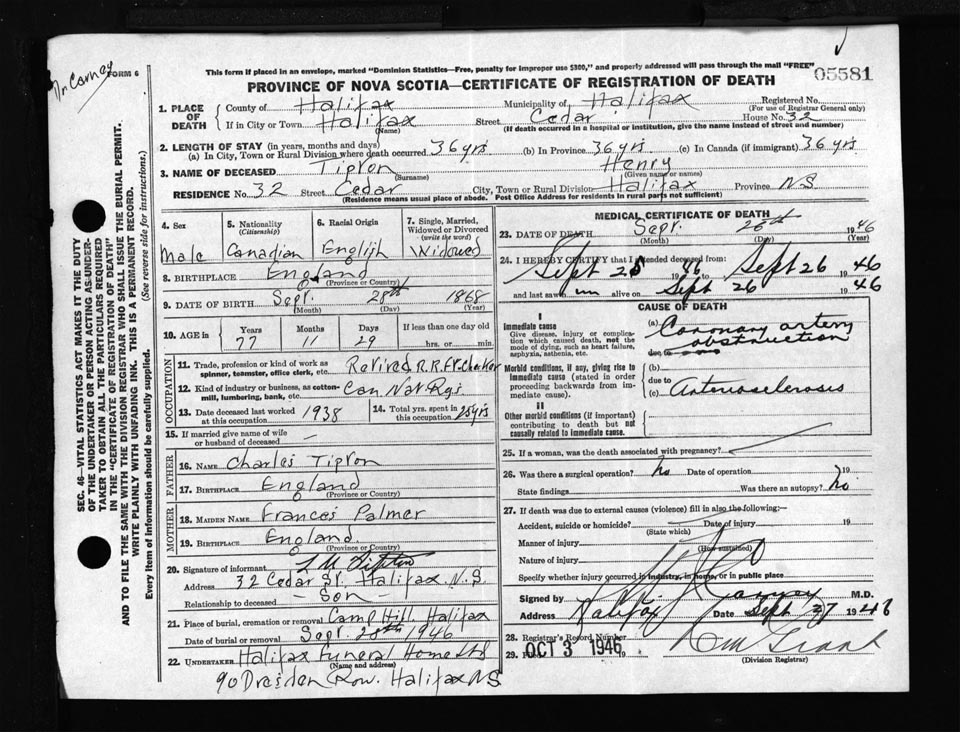 Dr. Carney
FORM 6
This form if placed in an envelope, marked "Dominion Statistics—Free, penalty for improper use $300," and properly addressed will pass through the mail "FREE"
05581
PROVINCE OF NOVA SCOTIA—CERTIFICATE OF REGISTRATION OF DEATH
1. PLACE OF DEATH { County of Halifax Municipality of Halifax Registered No.
(For use of Registrar General only)
If in City or Town Halifax Street Cedar House No. 32
(Name) (If death occurred in a hospital or institution, give the name instead of street and number)
2. LENGTH OF STAY (in years, months and days)
(a) In City, Town or Rural Division where death occurred 36 yrs (b) In Province 36 yrs (c) In Canada (if immigrant) 36 yrs
3. NAME OF DECEASED Tipton Henry
(Surname) (Given name or names)
RESIDENCE No. 32 Street Cedar City, Town or Rural Division Halifax Province N.S
(Residence means usual place of abode. Post Office Address for residents in rural parts not sufficient)
4. Sex 5. Nationality (Citizenship) 6. Racial Origin 7. Single, Married, Widowed or Divorced (write the word)
Male Canadian English Widowed
8. BIRTHPLACE England
(Province or Country)
9. DATE OF BIRTH Sept. 28th 1868
(Month) (Day) (Year)
10. AGE in Years Months Days If less than one day old
77 11 29 hrs. or min.
OCCUPATION
11. Trade, profession or kind of work as spinner, teamster, office clerk, etc. Retired R.R. Frt. checker
12. Kind of industry or business, as cotton-mill, lumbering, bank, etc. Can Nat Rys.
13. Date deceased last worked at this occupation 1938 14. Total yrs. spent in this occupation 28 yrs
15. If married give name of wife or husband of deceased —
FATHER
16. NAME Charles Tipton
17. BIRTHPLACE England
(Province or Country)
MOTHER
18. MAIDEN NAME Frances Palmer
19. BIRTHPLACE England.
(Province or Country)
20. Signature of informant Tipton
Address 32 Cedar St, Halifax N.S.
Relationship to deceased — Son —
21. Place of burial, cremation or removal Camp Hill, Halifax
Date of burial or removal Sept. 28th 1946
22. UNDERTAKER Halifax Funeral Home Ltd
(Name and address)
90 Dresden Row. Halifax NS
MEDICAL CERTIFICATE OF DEATH
23. DATE OF DEATH Sept. 26th 1946
(Month) (Day) (Year)
24. I HEREBY CERTIFY that I attended deceased from:
Sept 25 1946 to Sept 26 1946
and last saw him alive on Sept 26 1946
CAUSE OF DEATH
I
Immediate cause
Give disease, injury or complication which caused death, not the mode of dying, such as heart failure, asphyxia, asthenia, etc.
(a) Coronary artery obstruction
due to
Morbid conditions, if any, giving rise to immediate cause (stated in order proceeding backwards from immediate cause).
(b)
due to
(c) Arteriosclerosis
II
Other morbid conditions (if important) contributing to death but not causally related to immediate cause.
25. If a woman, was the death associated with pregnancy?
26. Was there a surgical operation? No Date of operation 19
State findings Was there an autopsy? No
27. If death was due to external causes (violence) fill in also the following:
Accident, suicide or homicide? Date of injury 19
(State which)
Manner of injury
(How sustained)
Nature of injury
Specify whether injury occurred in industry, in home, or in public place
Signed by Carney M.D.
Address Halifax Date Sept 27 1946
28. Registrar's Record Number
29. OCT 3 1946 19 Grant
(Division Registrar)
SEC. 46—VITAL STATISTICS ACT MAKES IT THE DUTY
OF THE UNDERTAKER OR PERSON ACTING AS UNDERTAKER TO OBTAIN ALL THE PARTICULARS REQUIRED
IN THE "CERTIFICATE OF REGISTRATION OF DEATH"
AND TO FILE THE SAME WITH THE DIVISION REGISTRAR WHO SHALL ISSUE THE BURIAL PERMIT.
WRITE PLAINLY WITH UNFADING INK. THIS IS A PERMANENT RECORD.
Every item of information should be carefully supplied. (See reverse side for instructions.)